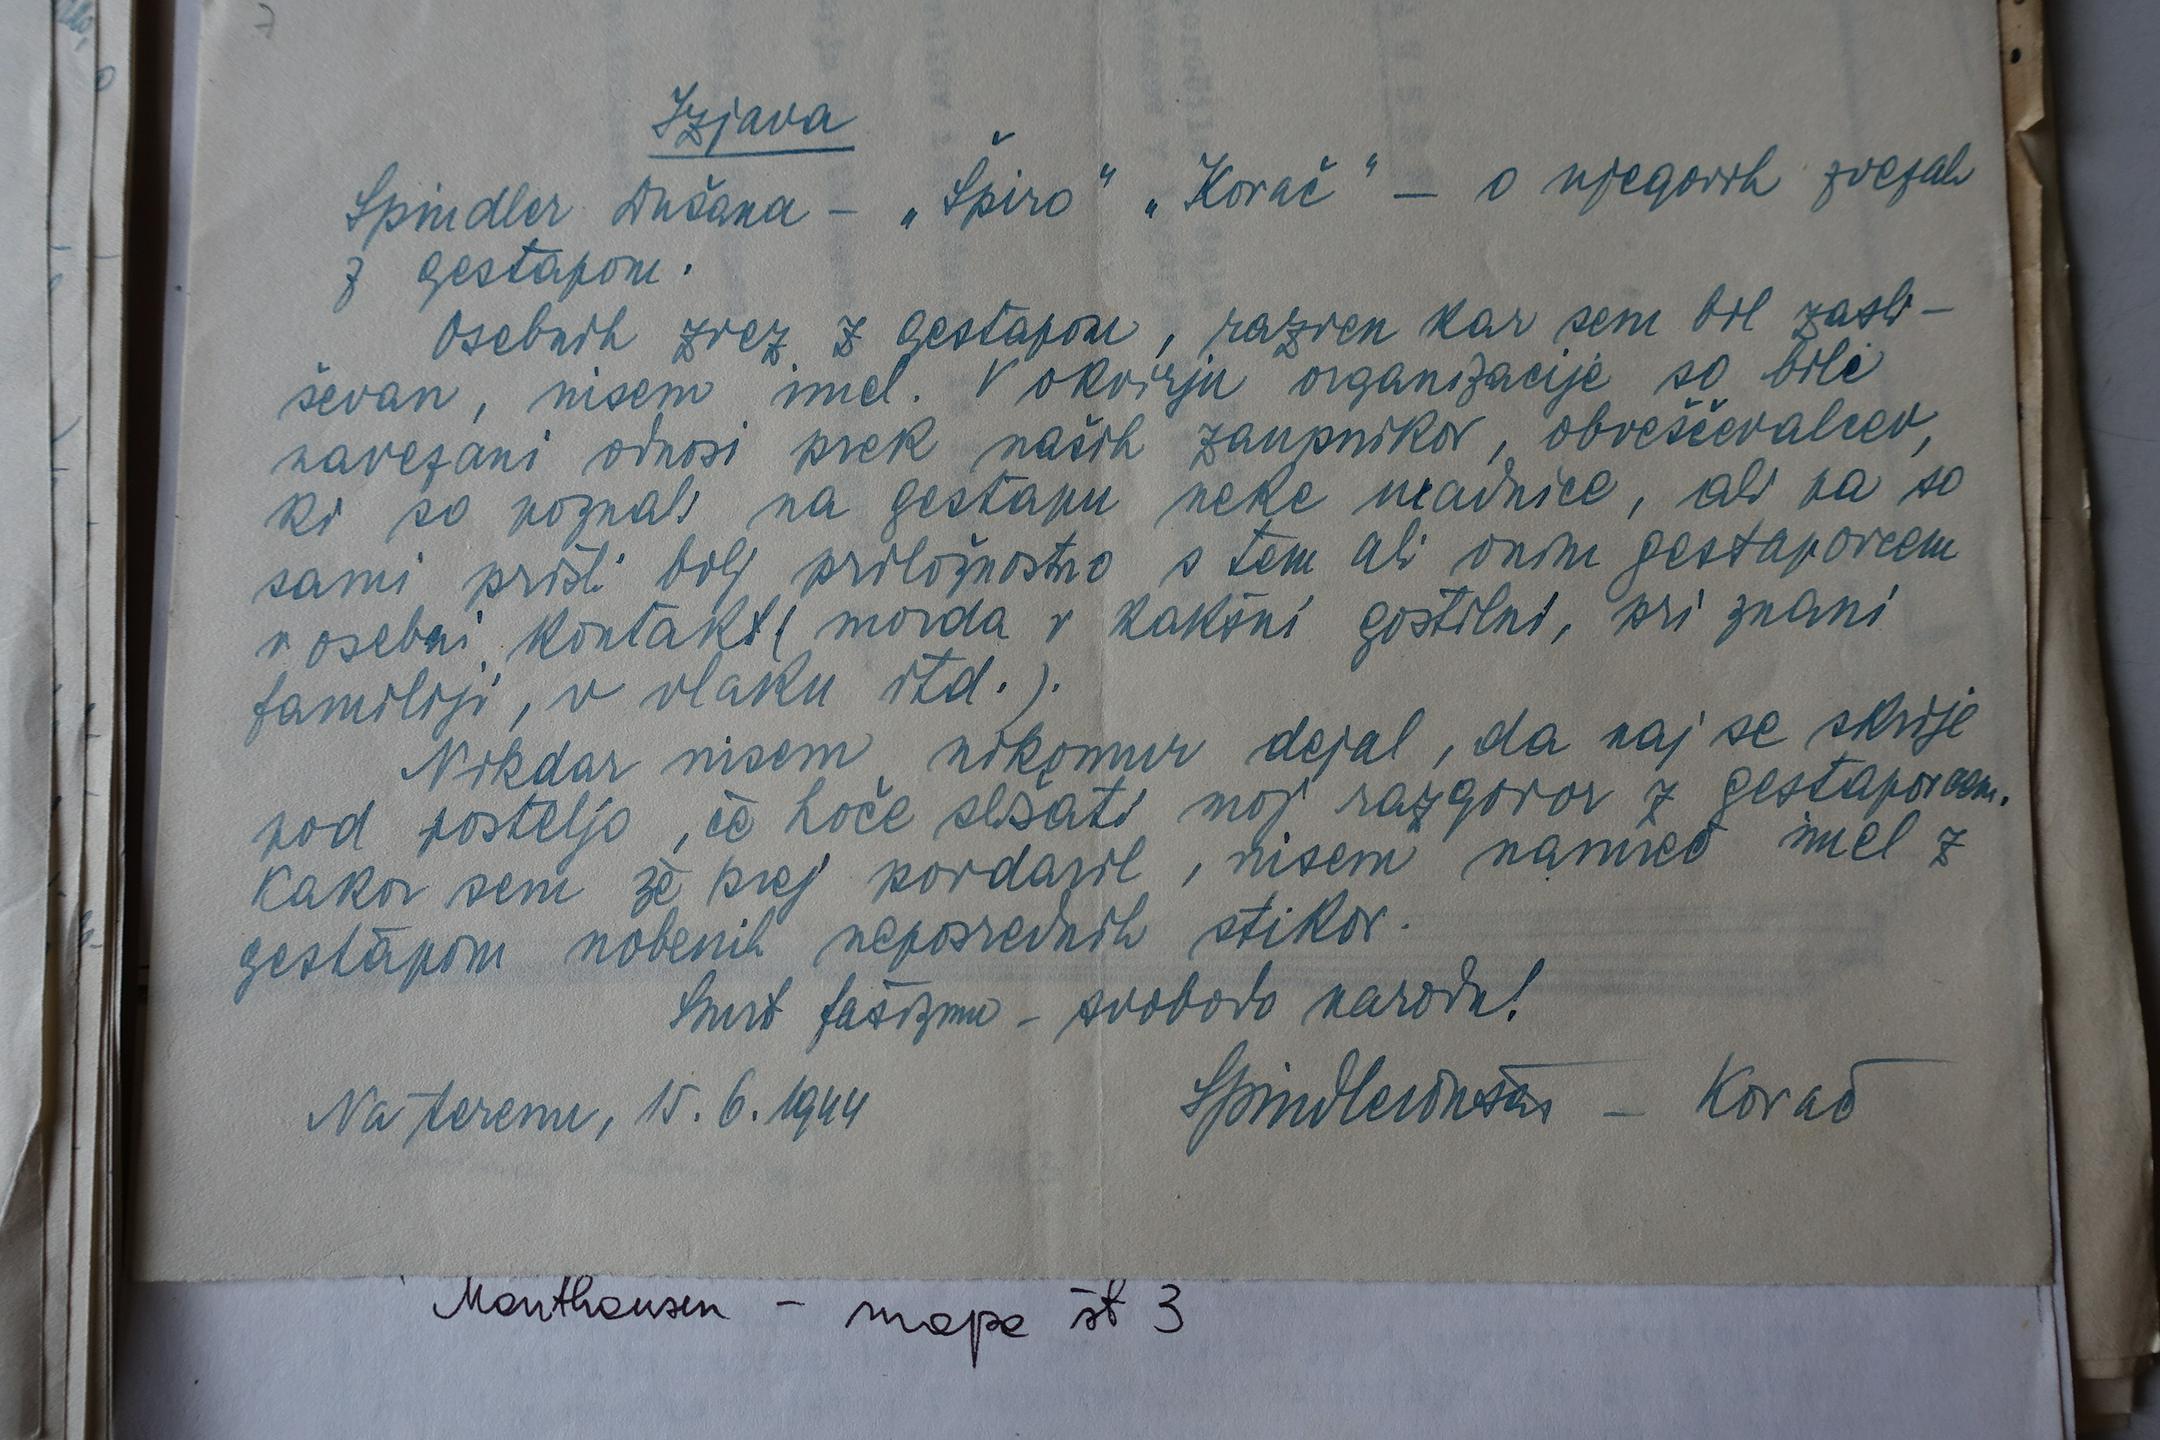 Izjava
Spindler Dušana – „Špiro" „Kovač" – o njegovih zvezah
z gestapom.
Osebnih zvez z gestapom, razven kar sem bil zasli-
ševan, nisem imel. V okvirju organizacije so bili
navezani odnosi prek naših zaupnikov, obveščevalcev,
ki so poznali na gestapu neke uradnice, ali pa so
sami prišli bolj priložnostno s tem ali onim gestapovcem
v osebni kontakt (morda v kakšni gostilni, pri znani
familiji, v vlaku itd.).
Nikdar nisem nikomur dejal, da naj se skrije
pod posteljo, če hoče slišati moj razgovor z gestapovcem.
Kakor sem že prej povdaril, nisem namreč imel z
gestapom nobenih neposrednih stikov.
Smrt fašizmu – svobodo narodu!
Na terenu, 15. 6. 1944
Spindler Dušan – Kovač
Mauthausen – mapa št 3